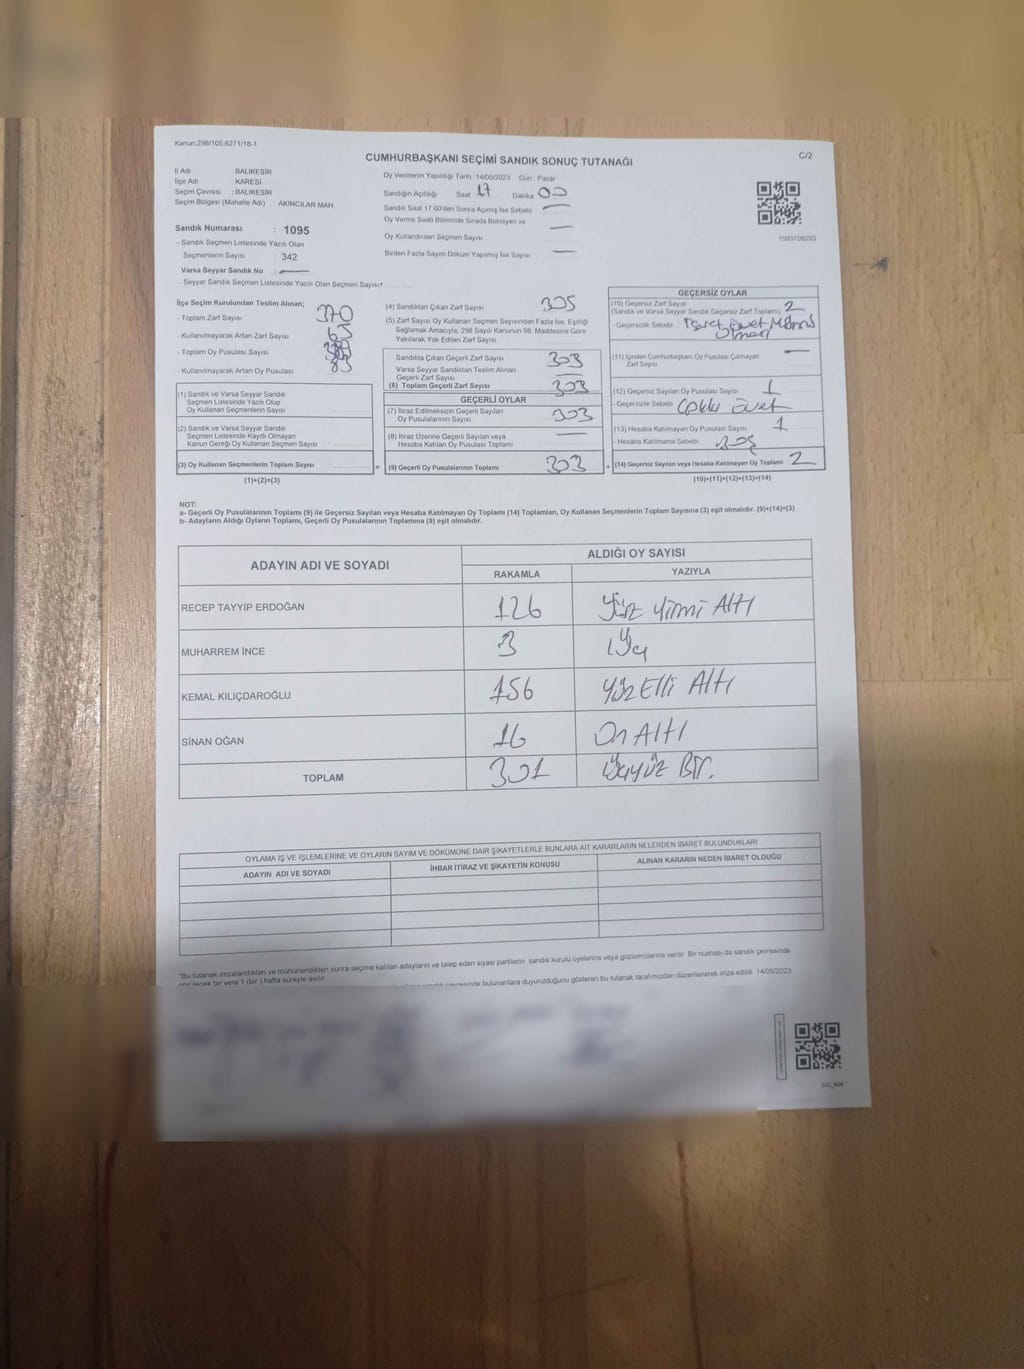 Kanun:298/105:6271/18-1
C/2
CUMHURBAŞKANI SEÇİMİ SANDIK SONUÇ TUTANAĞI
İl Adı BALIKESİR
İlçe Adı : KARESİ
Seçim Çevresi : BALIKESİR
Seçim Bölgesi (Mahalle Adı) : AKINCILAR MAH.
Sandık Numarası : 1095
- Sandık Seçmen Listesinde Yazılı Olan
Seçmenlerin Sayısı : 342
Varsa Seyyar Sandık No :
- Seyyar Sandık Seçmen Listesinde Yazılı Olan Seçmen Sayısı*
Oy Vermenin Yapıldığı Tarih: 14/05/2023 Gün : Pazar
Sandığın Açıldığı Saat 17 Dakika 00
Sandık Saat 17:00'den Sonra Açılmış İse Sebebi
Oy Verme Saati Bitiminde Sırada Bekleyen ve
Oy Kullandırılan Seçmen Sayısı
Birden Fazla Sayım Döküm Yapılmış İse Sayısı
1093708293
İlçe Seçim Kurulundan Teslim Alınan;
- Toplam Zarf Sayısı 370
- Kullanılmayarak Artan Zarf Sayısı 65
- Toplam Oy Pusulası Sayısı
- Kullanılmayarak Artan Oy Pusulası 85
(1) Sandık ve Varsa Seyyar Sandık
Seçmen Listesinde Yazılı Olup
Oy Kullanan Seçmenlerin Sayısı
(2) Sandık ve Varsa Seyyar Sandık
Seçmen Listesinde Kayıtlı Olmayan
Kanun Gereği Oy Kullanan Seçmen Sayısı
(3) Oy Kullanan Seçmenlerin Toplam Sayısı =
(1)+(2)=(3)
(4) Sandıktan Çıkan Zarf Sayısı 305
(5) Zarf Sayısı Oy Kullanan Seçmen Sayısından Fazla İse, Eşitliği
Sağlamak Amacıyla, 298 Sayılı Kanunun 98. Maddesine Göre
Yakılarak Yok Edilen Zarf Sayısı
Sandıkta Çıkan Geçerli Zarf Sayısı 303
Varsa Seyyar Sandıktan Teslim Alınan
Geçerli Zarf Sayısı
(6) Toplam Geçerli Zarf Sayısı 303
GEÇERLİ OYLAR
(7) İtiraz Edilmeksizin Geçerli Sayılan
Oy Pusulalarının Sayısı 303
(8) İtiraz Üzerine Geçerli Sayılan veya
Hesaba Katılan Oy Pusulası Toplamı
(9) Geçerli Oy Pusulalarının Toplamı 303 +
GEÇERSİZ OYLAR
(10) Geçersiz Zarf Sayısı
(Sandık ve Varsa Seyyar Sandık Geçersiz Zarf Toplamı) 2
- Geçersizlik Sebebi
(11) İçinden Cumhurbaşkanı Oy Pusulası Çıkmayan
Zarf Sayısı
(12) Geçersiz Sayılan Oy Pusulası Sayısı 1
- Geçersizlik Sebebi Çoklu Evet
(13) Hesaba Katılmayan Oy Pusulası Sayısı 1
- Hesaba Katılmama Sebebi
(14) Geçersiz Sayılan veya Hesaba Katılmayan Oy Toplamı 2
(10)+(11)+(12)+(13)=(14)
NOT:
a- Geçerli Oy Pusulalarının Toplamı (9) ile Geçersiz Sayılan veya Hesaba Katılmayan Oy Toplamı (14) Toplamları, Oy Kullanan Seçmenlerin Toplam Sayısına (3) eşit olmalıdır. (9)+(14)=(3)
b- Adayların Aldığı Oyların Toplamı, Geçerli Oy Pusulalarının Toplamına (9) eşit olmalıdır.
ADAYIN ADI VE SOYADI
ALDIĞI OY SAYISI
RAKAMLA YAZIYLA
RECEP TAYYİP ERDOĞAN 126 Yüz Yirmi Altı
MUHARREM İNCE 3 Üç
KEMAL KILIÇDAROĞLU 156 Yüz Elli Altı
SİNAN OĞAN 16 On Altı
TOPLAM 301 Üçyüz Bir.
OYLAMA İŞ VE İŞLEMLERİNE VE OYLARIN SAYIM VE DÖKÜMÜNE DAİR ŞİKAYETLERLE BUNLARA AİT KARARLARIN NELERDEN İBARET BULUNDUKLARI
ADAYIN ADI VE SOYADI İHBAR İTİRAZ VE ŞİKAYETİN KONUSU ALINAN KARARIN NEDEN İBARET OLDUĞU
*Bu tutanak imzalandıktan ve mühürlendikten sonra seçime katılan adayların ve talep eden siyasi partilerin sandık kurulu üyelerine veya gözlemcilerine verilir. Bir nüshası da sandık çevresinde
görülecek bir yere 1 (bir) hafta süreyle asılır. çevresinde bulunanlara duyurulduğunu gösteren bu tutanak tarafımızdan düzenlenerek imza edildi. 14/05/2023